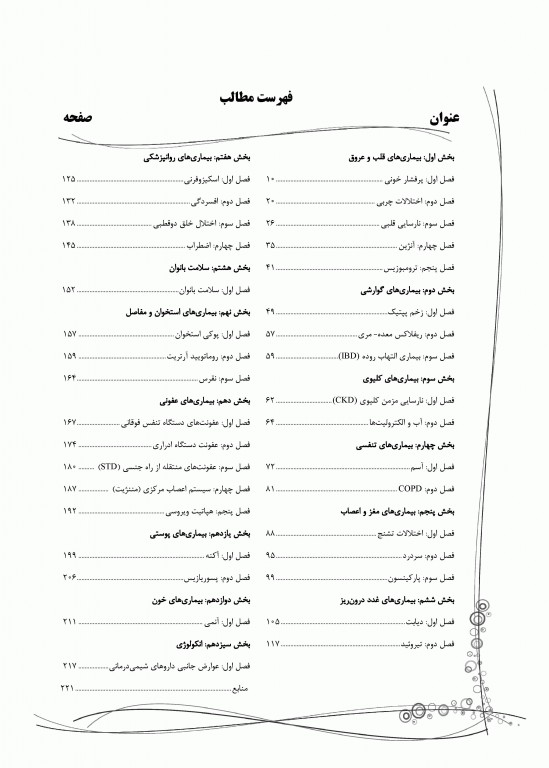 فهرست مطالب
عنوان
صفحه
بخش اول: بیماری‌های قلب و عروق
فصل اول: پرفشار خونی ........ ۱۰
فصل دوم: اختلالات چربی ........ ۲۰
فصل سوم: نارسایی قلبی ........ ۲۶
فصل چهارم: آنژین ........ ۳۵
فصل پنجم: ترومبوزیس ........ ۴۱
بخش دوم: بیماری‌های گوارشی
فصل اول: زخم پپتیک ........ ۴۹
فصل دوم: ریفلاکس معده- مری ........ ۵۷
فصل سوم: بیماری التهاب روده (IBD) ........ ۵۹
بخش سوم: بیماری‌های کلیوی
فصل اول: نارسایی مزمن کلیوی (CKD) ........ ۶۲
فصل دوم: آب و الکترولیت‌ها ........ ۶۴
بخش چهارم: بیماری‌های تنفسی
فصل اول: آسم ........ ۷۲
فصل دوم: COPD ........ ۸۱
بخش پنجم: بیماری‌های مغز و اعصاب
فصل اول: اختلالات تشنج ........ ۸۸
فصل دوم: سردرد ........ ۹۵
فصل سوم: پارکینسون ........ ۹۹
بخش ششم: بیماری‌های غدد درون‌ریز
فصل اول: دیابت ........ ۱۰۵
فصل دوم: تیروئید ........ ۱۱۷
بخش هفتم: بیماری‌های روانپزشکی
فصل اول: اسکیزوفرنی ........ ۱۲۵
فصل دوم: افسردگی ........ ۱۳۲
فصل سوم: اختلال خلق دوقطبی ........ ۱۳۸
فصل چهارم: اضطراب ........ ۱۴۵
بخش هشتم: سلامت بانوان
فصل اول: سلامت بانوان ........ ۱۵۲
بخش نهم: بیماری‌های استخوان و مفاصل
فصل اول: پوکی استخوان ........ ۱۵۷
فصل دوم: روماتویید آرتریت ........ ۱۵۹
فصل سوم: نقرس ........ ۱۶۴
بخش دهم: بیماری‌های عفونی
فصل اول: عفونت‌های دستگاه تنفس فوقانی ........ ۱۶۷
فصل دوم: عفونت دستگاه ادراری ........ ۱۷۴
فصل سوم: عفونت‌های منتقله از راه جنسی (STD) ........ ۱۸۰
فصل چهارم: سیستم اعصاب مرکزی (مننژیت) ........ ۱۸۷
فصل پنجم: هپاتیت ویروسی ........ ۱۹۲
بخش یازدهم: بیماری‌های پوستی
فصل اول: آکنه ........ ۱۹۹
فصل دوم: پسوریازیس ........ ۲۰۶
بخش دوازدهم: بیماری‌های خون
فصل اول: آنمی ........ ۲۱۱
بخش سیزدهم: انکولوژی
فصل اول: عوارض جانبی داروهای شیمی‌درمانی ........ ۲۱۷
منابع ........ ۲۲۱